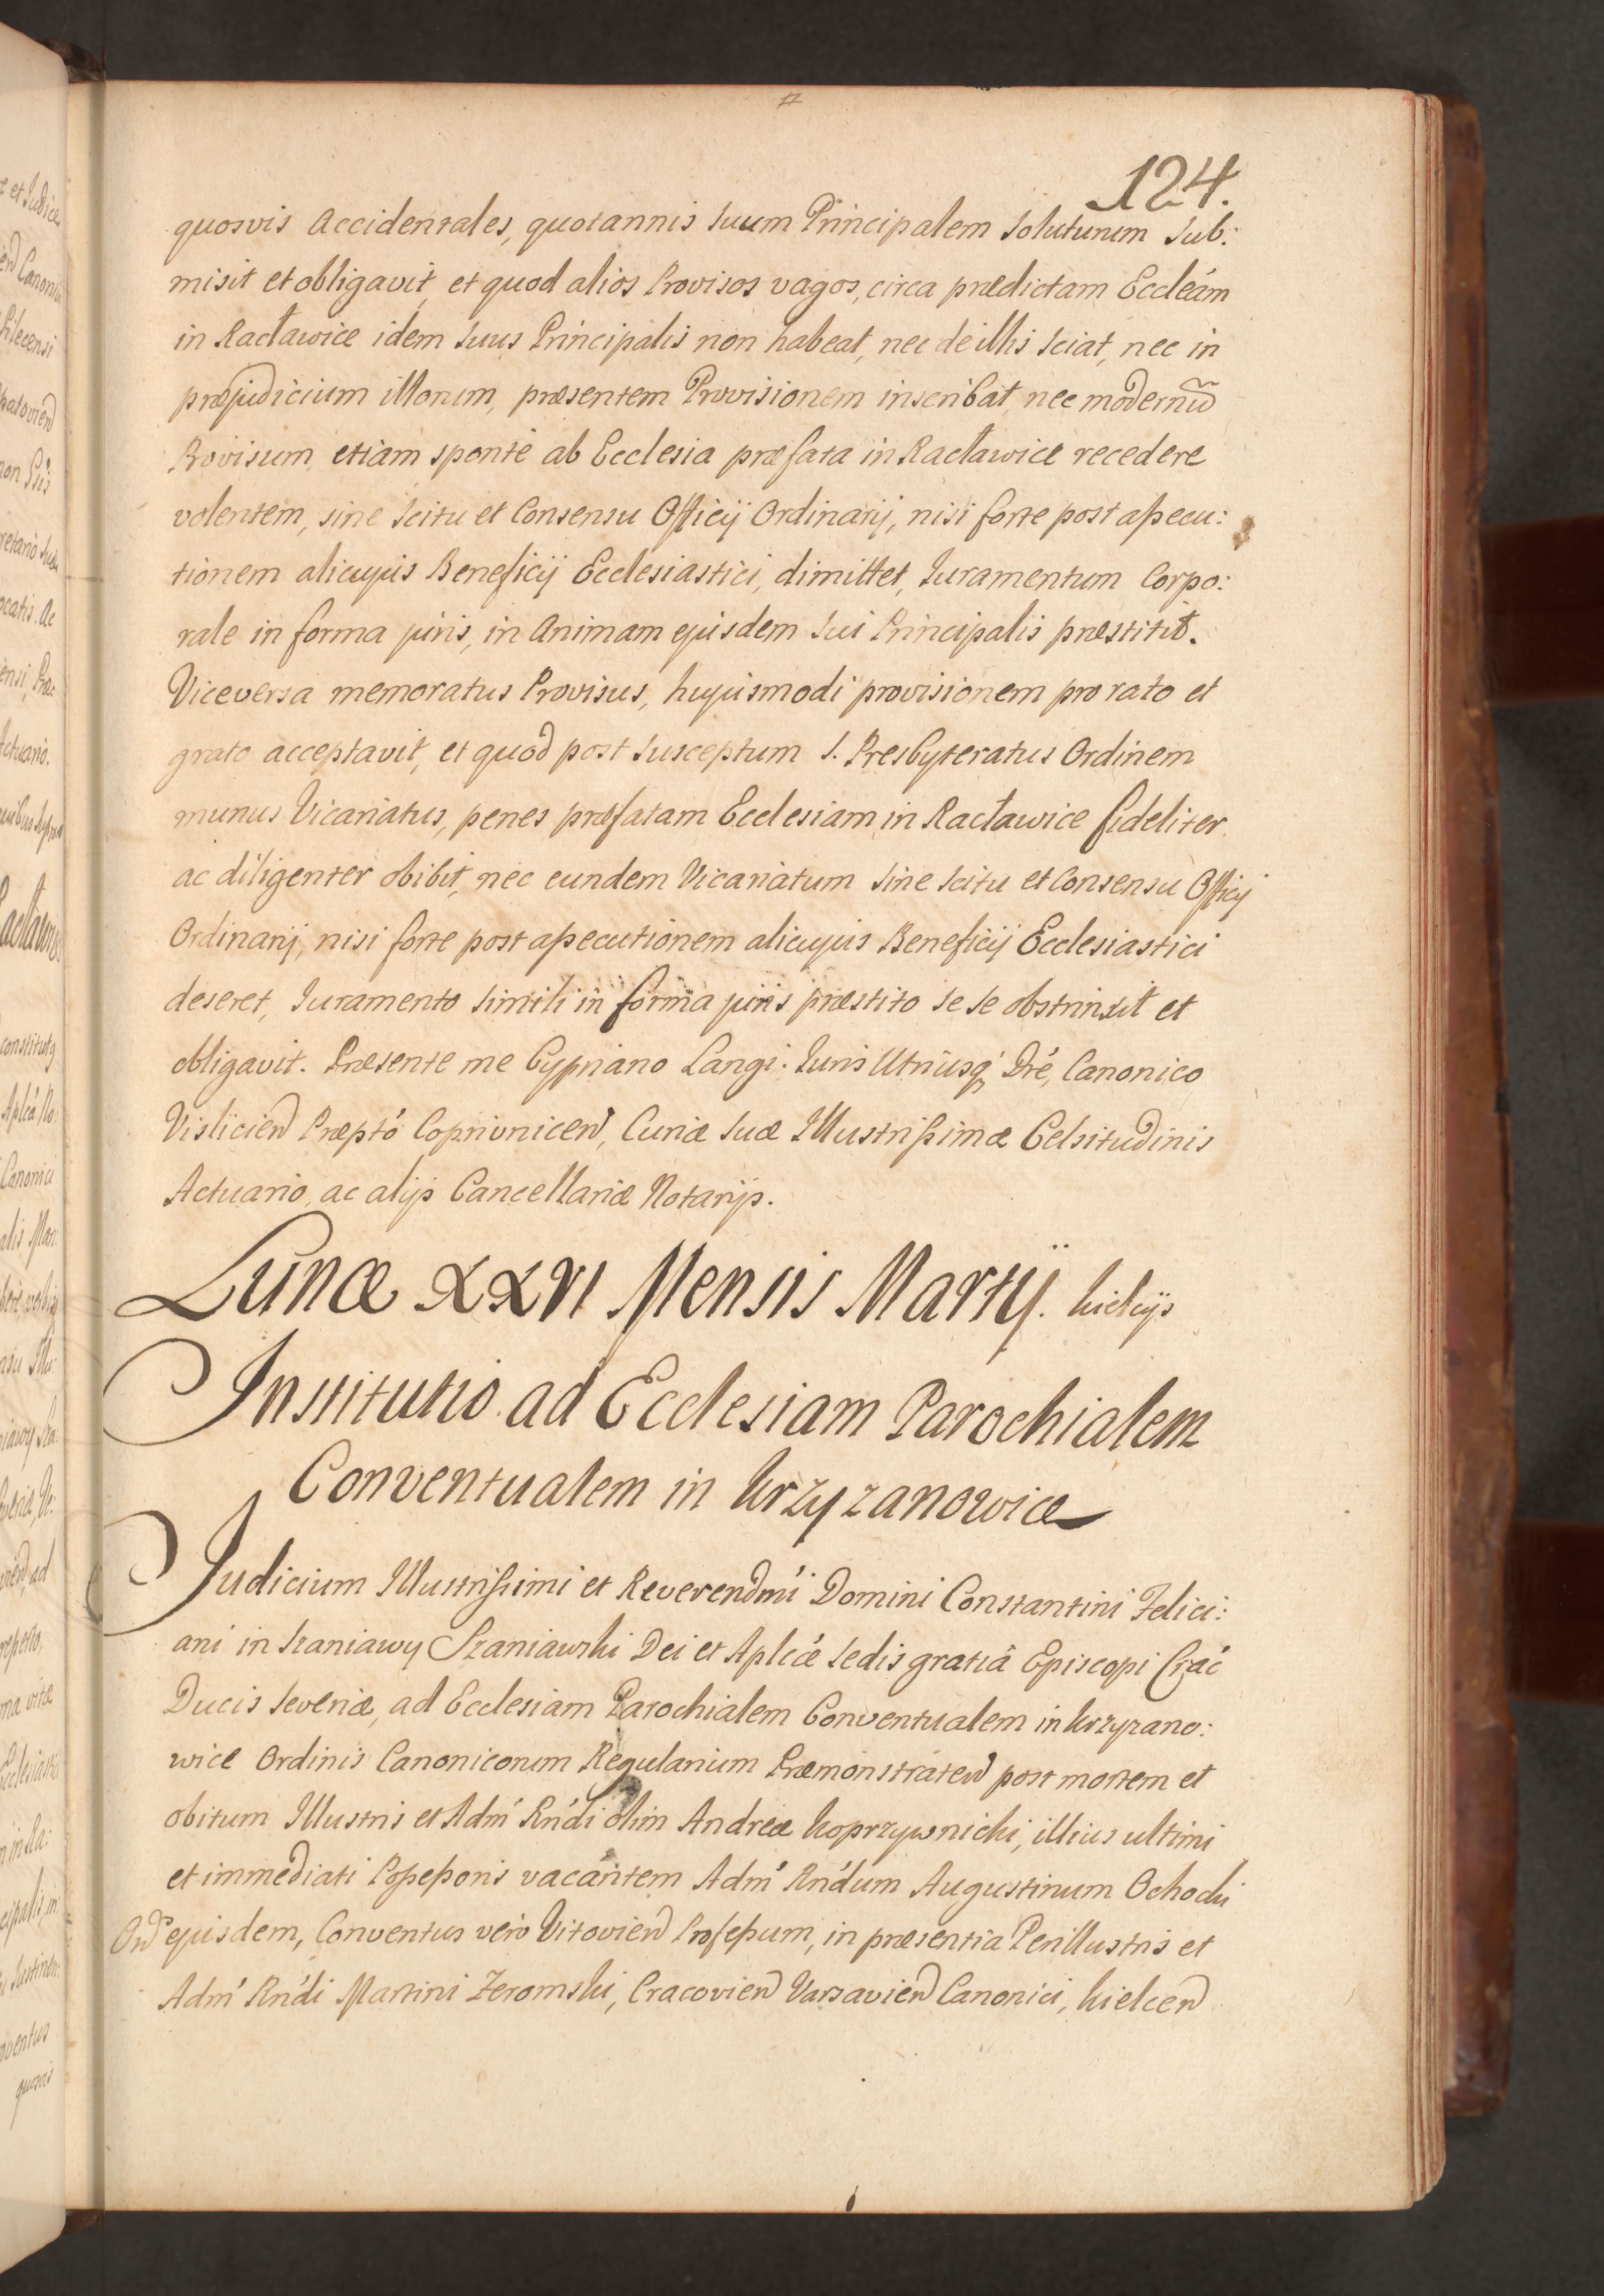 124.
quosvis Accidentales, quotannis suum Principalem soluturum sub:
misit et obligavit, et quod alios Provisos vagos, circa prædictam Eccleám
in Racławice idem suus Principalis non habeat, nec de illis sciat, nec in
præjudicium illorum, præsentem Provisionem inscribat, nec modernũ
Provisum, etiam sponte ab Ecclesia præfata in Racławice recedere
volentem, sine scitu et Consensu Officij Ordinarij, nisi forte post assecu:
tionem alicujus Beneficij Ecclesiastici, dimittet, Juramentum Corpo:
rale in forma juris, in Animam ejusdem sui Principalis præstitit.
Viceversa memoratus Provisus, hujusmodi provisionem pro rato et
grato acceptavit, et quod post susceptum S. Presbyteratus Ordinem
munus Vicariatus, penes præfatam Ecclesiam in Racławice fideliter
ac diligenter obibit, nec eundem Vicariatum sine scitu et Consensu Officij
Ordinarij, nisi forte post assecutionem alicujus Beneficij Ecclesiastici
deseret, Juramento simili in forma juris præstito se se obstrinxit et
obligavit. Præsente me Cypriano Langi: Juris Utriusq; Dré, Canonico
Visliciên Præptó Coprivnicen, Curiæ suæ Illustrissimæ Celsitudinis
Actuario, ac alijs Cancellariæ Notarijs.
Lunæ XXVI Mensis Martij. Kielcijs
Institutio ad Ecclesiam Parochialem
Conventualem in Krzyzanowice
Judicium Illustrissimi et Reverendmi Domini Constantini Felici:
ani in Szaniawy Szaniawski Dei et Aplicæ Sedis gratiâ Episcopi Crać
Ducis Severiæ, ad Ecclesiam Parochialem Conventualem in Krzyzano:
wice Ordinis Canonicorum Regularium Præmonstraten post mortem et
obitum Illustris et Adm' Rńdi olim Andreæ Koprzywnicki, illius ultimi
et immediati Possessoris vacantem Adm' Rńdum Augustinum Ochocki
Ord ejusdem, Conventus vero Vitovien Professum, in præsentia Perillustris et
Adm' Rńdi Martini Zeromski, Cracovien Varsavien Canonici, Kielcen